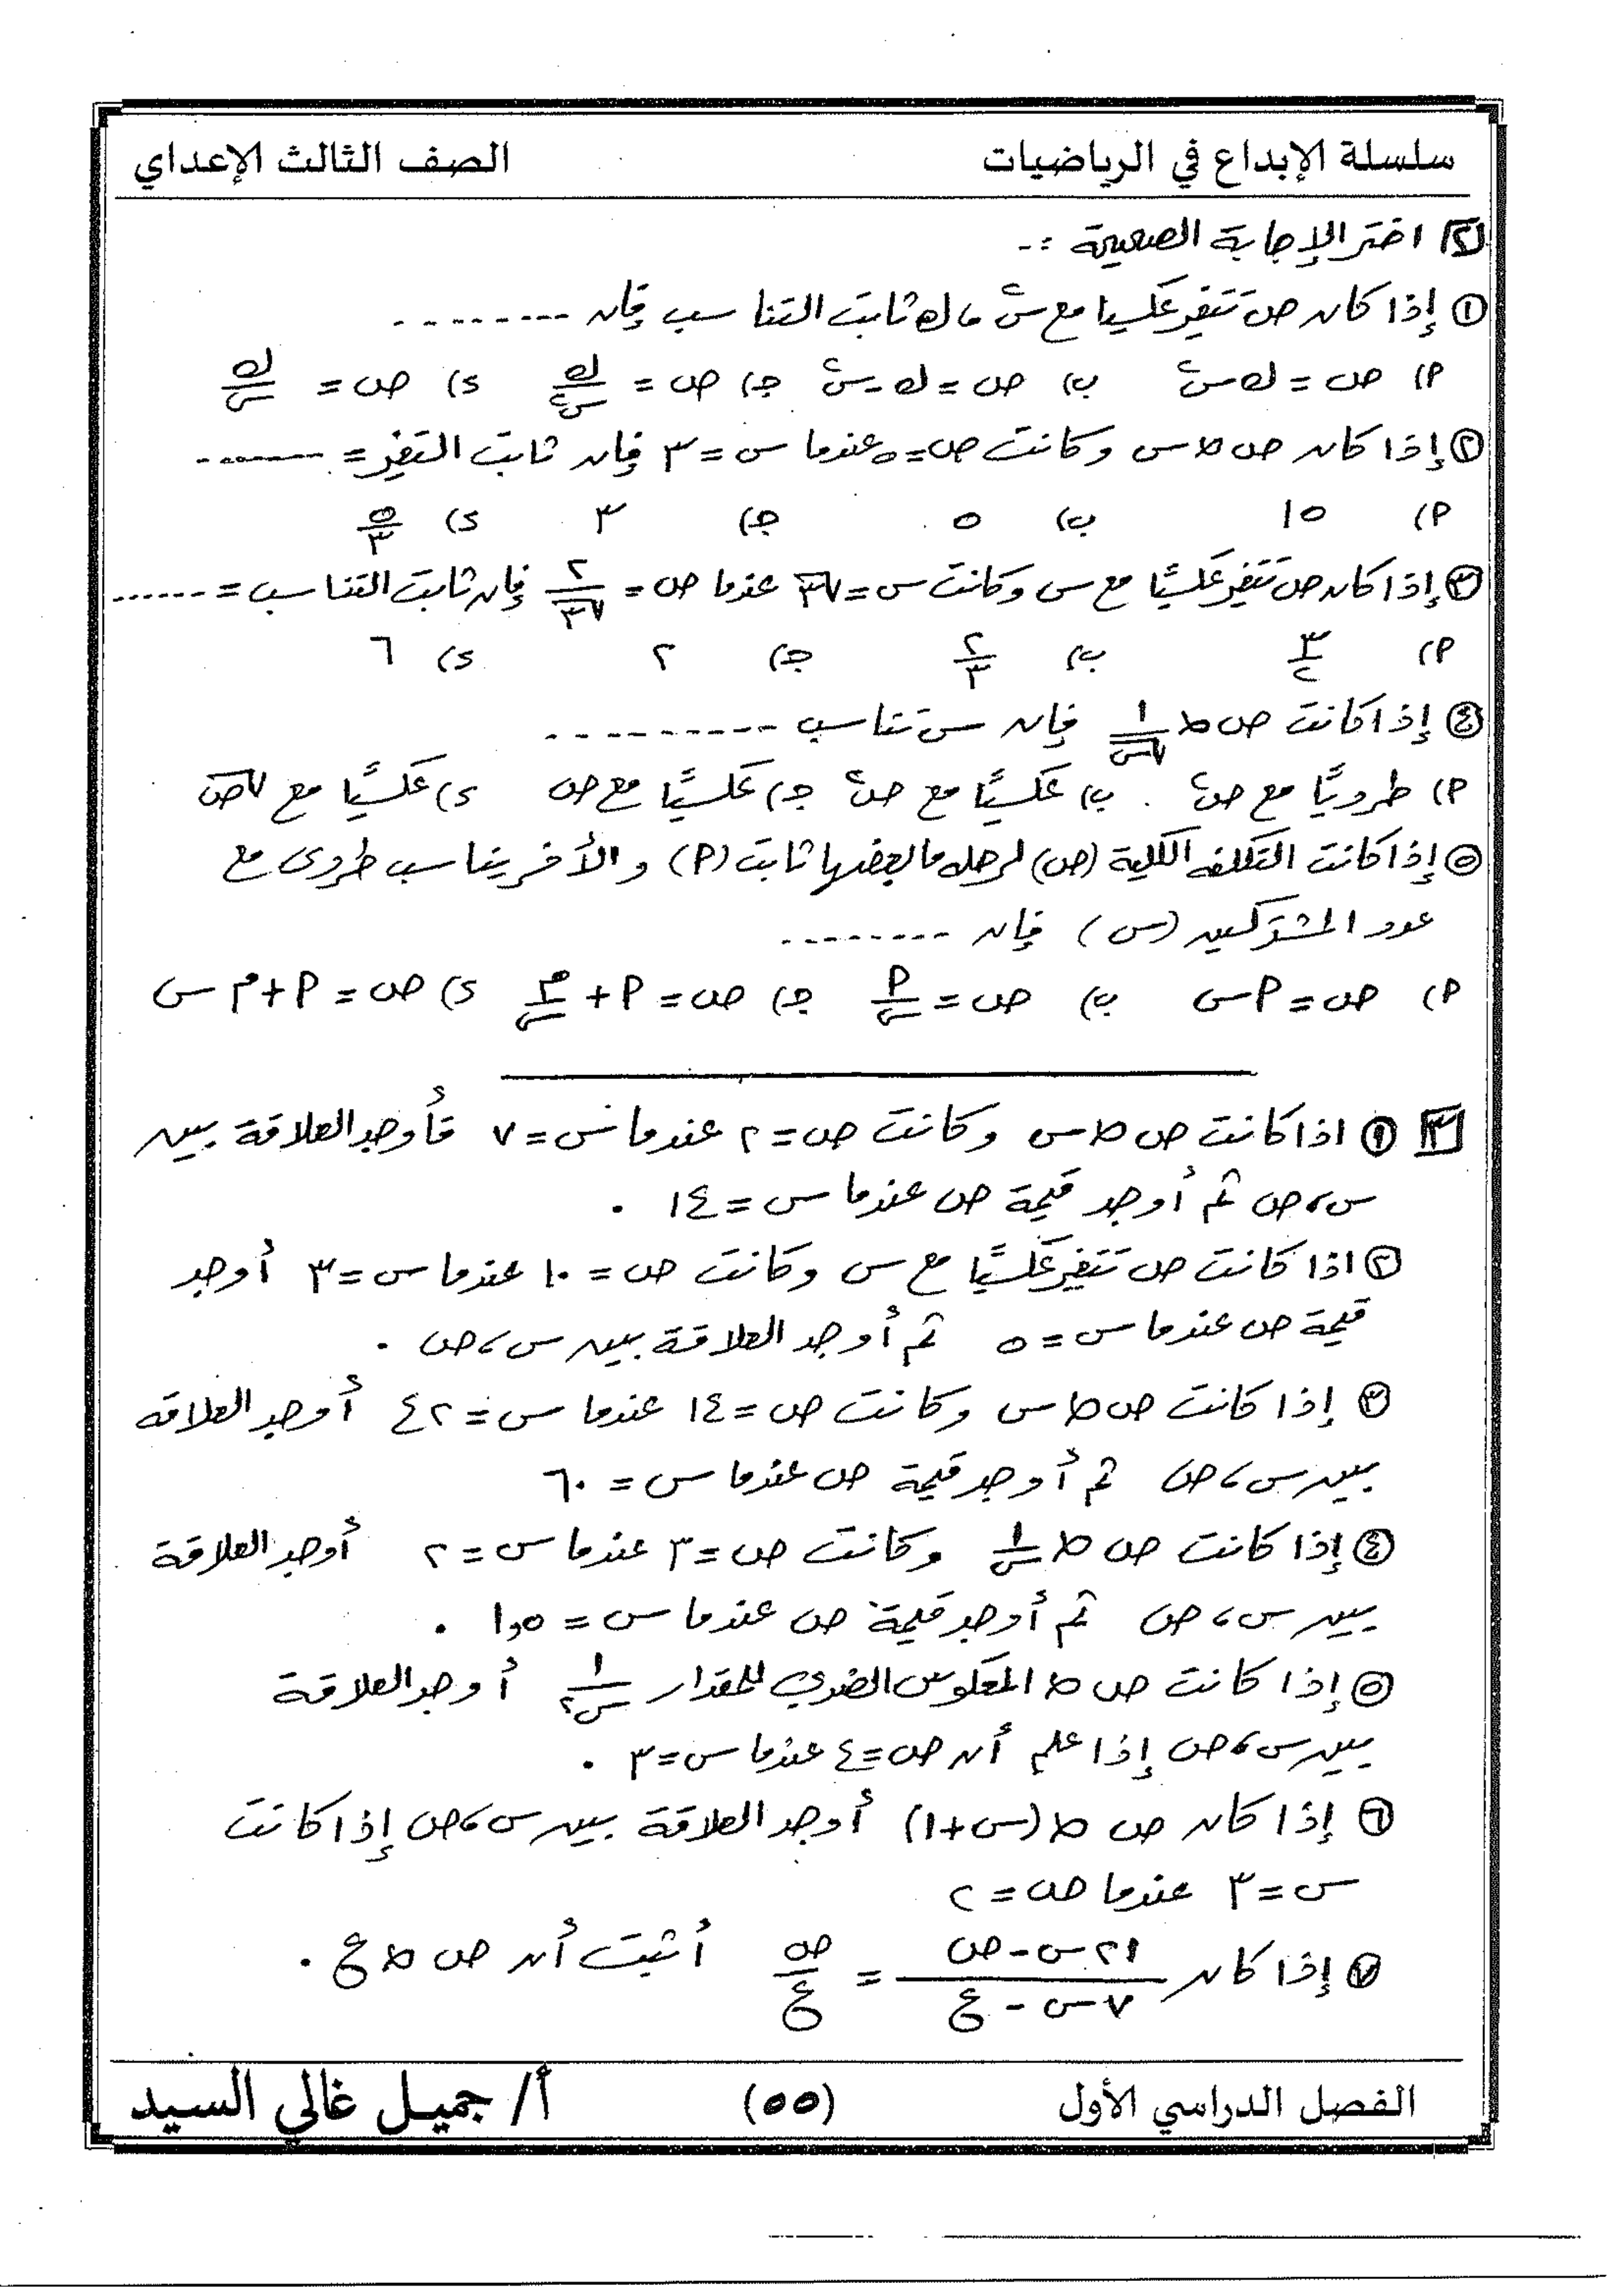 سلسلة الإبداع في الرياضيات الصف الثالث الإعداي
٢ اختر الإجابة الصحيحة :-
١ إذا كان ص تتغير عكسيا مع س٢ ، ك ثابت التناسب فإن ---------
أ) ص = ك س٢ ب) ص = ك - س٢ ج) ص = ك/س٢ د) ص = ك/س
٢ إذا كان ص ∝ س وكانت ص = ٥ عندما س = ٣ فإن ثابت التغير = ---------
أ) ١٥ ب) ٥ ج) ٣ د) ٥/٣
٣ إذا كان ص تتغير عكسيًا مع س وكانت س = √٣ عندما ص = ٢/√٣ فإن ثابت التناسب = ......
أ) ٣/٢ ب) ٢/٣ ج) ٢ د) ٦
٤ إذا كانت ص ∝ ١/√س فإن س تناسب ----------
أ) طرديًا مع ص٢ ب) عكسيًا مع ص٢ ج) عكسيًا مع ص د) عكسيًا مع √ص
٥ إذا كانت التكلفه الكلية (ص) لرحله ما بعضها ثابت (أ) والأخر يتناسب طردى مع
عدد المشتركين (س) فإن --------
أ) ص = أ س ب) ص = أ/س ج) ص = أ + م/س د) ص = أ + م س
٣ ١ اذا كانت ص ∝ س وكانت ص = ٢ عندما س = ٧ فأوجد العلاقة بين
س ، ص ثم أوجد قيمة ص عندما س = ١٤ .
٢ اذا كانت ص تتغير عكسيًا مع س وكانت ص = ١٠ عندما س = ٣ أوجد
قيمة ص عندما س = ٥ ثم أوجد العلاقة بين س ، ص .
٣ إذا كانت ص ∝ س وكانت ص = ١٤ عندما س = ٤٢ أوجد العلاقه
بين س ، ص ثم أوجد قيمة ص عندما س = ٦٠
٤ إذا كانت ص ∝ ١/س وكانت ص = ٣ عندما س = ٢ أوجد العلاقة
بين س ، ص ثم أوجد قيمة ص عندما س = ١,٥ .
٥ إذا كانت ص ∝ المعكوس الضربي للمقدار ١/س٢ أوجد العلاقة
بين س ، ص إذا علم أن ص = ٤ عندما س = ٣ .
٦ إذا كان ص ∝ (س + ١) أوجد العلاقة بين س ، ص إذا كانت
س = ٣ عندما ص = ٢
٧ إذا كان (٢١ س - ص)/(٧ س - ع) = ص/ع أثبت أن ص ∝ ع .
الفصل الدراسي الأول (٥٥) أ/ جميل غالي السيد